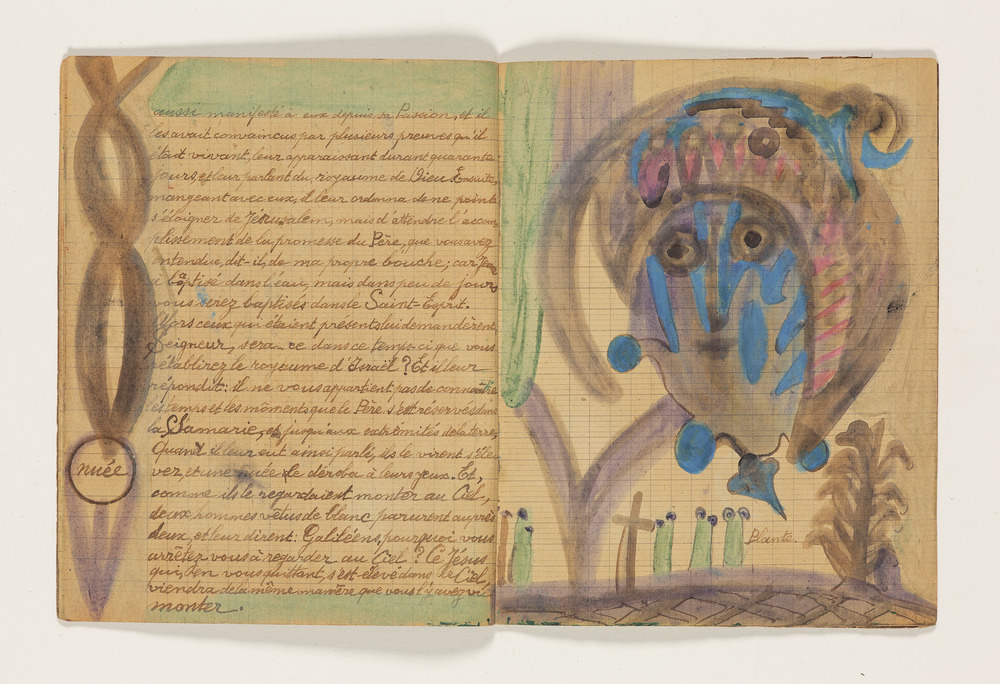 aussi manifesté à eux depuis sa Passion, et il
les avait convaincus par plusieurs preuves qu'il
était vivant, leur apparaissant durant quarante
jours, et leur parlant du royaume de Dieu Ensuite,
mangeant avec eux, il leur ordonna de ne point
s'éloigner de Jérusalem, mais d'attendre l'accom
plissement de la promesse du Père, que vous avez
entendue, dit-il, de ma propre bouche; car Jean
a baptisé dans l'eau, mais dans peu de jours
vous serez baptisés dans le Saint-Esprit.
Alors ceux qui étaient présents lui demandèrent
Seigneur, sera-ce dans ce temps-ci que vous
rétablirez le royaume d'Israël ? Et il leur
répondit: il ne vous appartient pas de connaître
les temps et les moments que le Père s'est réservés dans
la Samarie, et jusqu'aux extrémités de la terre,
Quand il leur eut ainsi parlé, ils le virent s'éle
ver, et une nuée le déroba à leurs yeux. Et,
nuée
comme ils le regardaient monter au Ciel,
deux hommes vêtus de blanc parurent auprès
deux, et leur dirent: Galiléens, pourquoi vous
arrêtez vous à regarder au Ciel ? Ce Jésus
qui, en vous quittant, s'est élevé dans le Ciel,
viendra de la même manière que vous l'y avez vu
monter.
Plante.